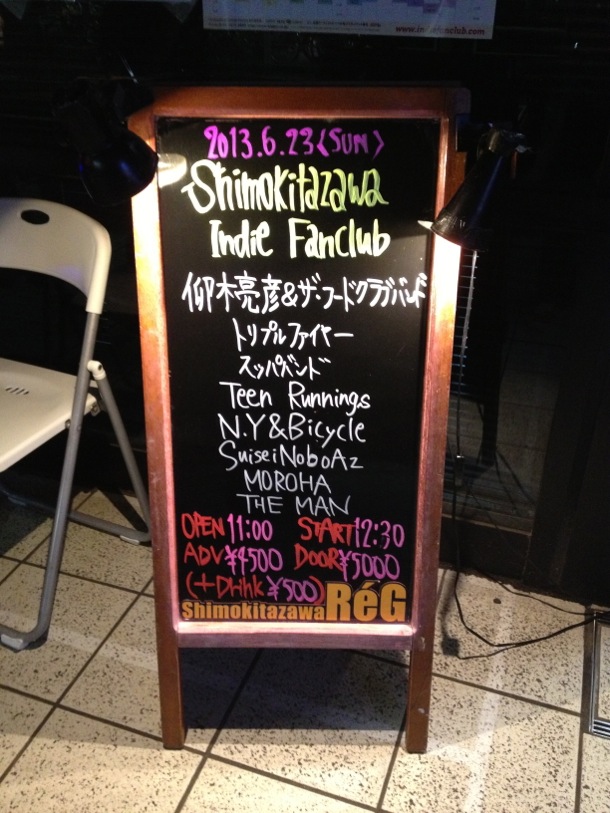 www.indiefanclub.com
2013.6.23〈SUN〉
Shimokitazawa
Indie Fanclub
仰木亮彦&ザ・フードクラブバンド
トリプルファイヤー
スッパバンド
Teen Runnings
N.Y&Bicycle
SuiseiNoboAz
MOROHA
THE MAN
OPEN 11:00 START 12:30
ADV ¥4500 DOOR ¥5000
(+DHhk ¥500)
Shimokitazawa RéG